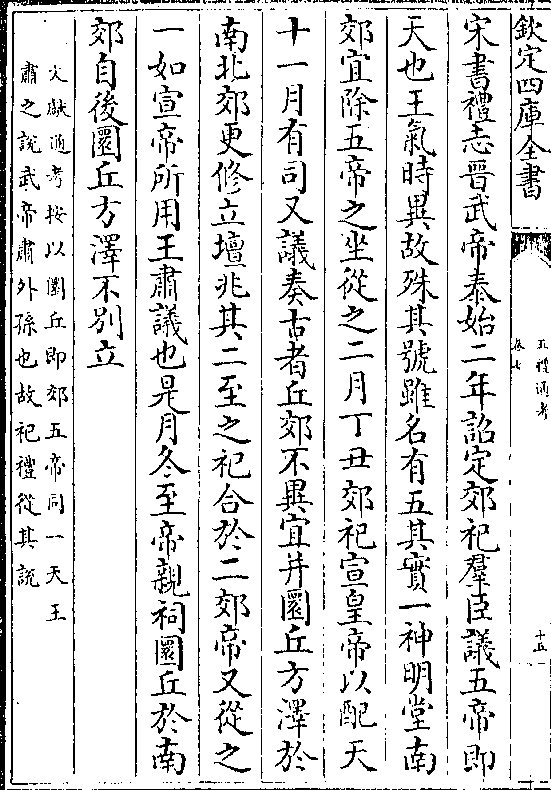 欽定四庫全書
五禮通考
卷七
十五
宋書禮志晉武帝泰始二年詔定郊祀羣臣議五帝即
天也王氣時異故殊其號雖名有五其實一神明堂南
郊宜除五帝之坐從之二月丁丑郊祀宣皇帝以配天
十一月有司又議奏古者丘郊不異宜并圜丘方澤於
南北郊更修立壇兆其二至之祀合於二郊帝又從之
一如宣帝所用王肅議也是月冬至帝親祠圜丘於南
郊自後圜丘方澤不別立
文獻通考按以圜丘即郊五帝同一天王
肅之說武帝肅外孫也故祀禮從其說